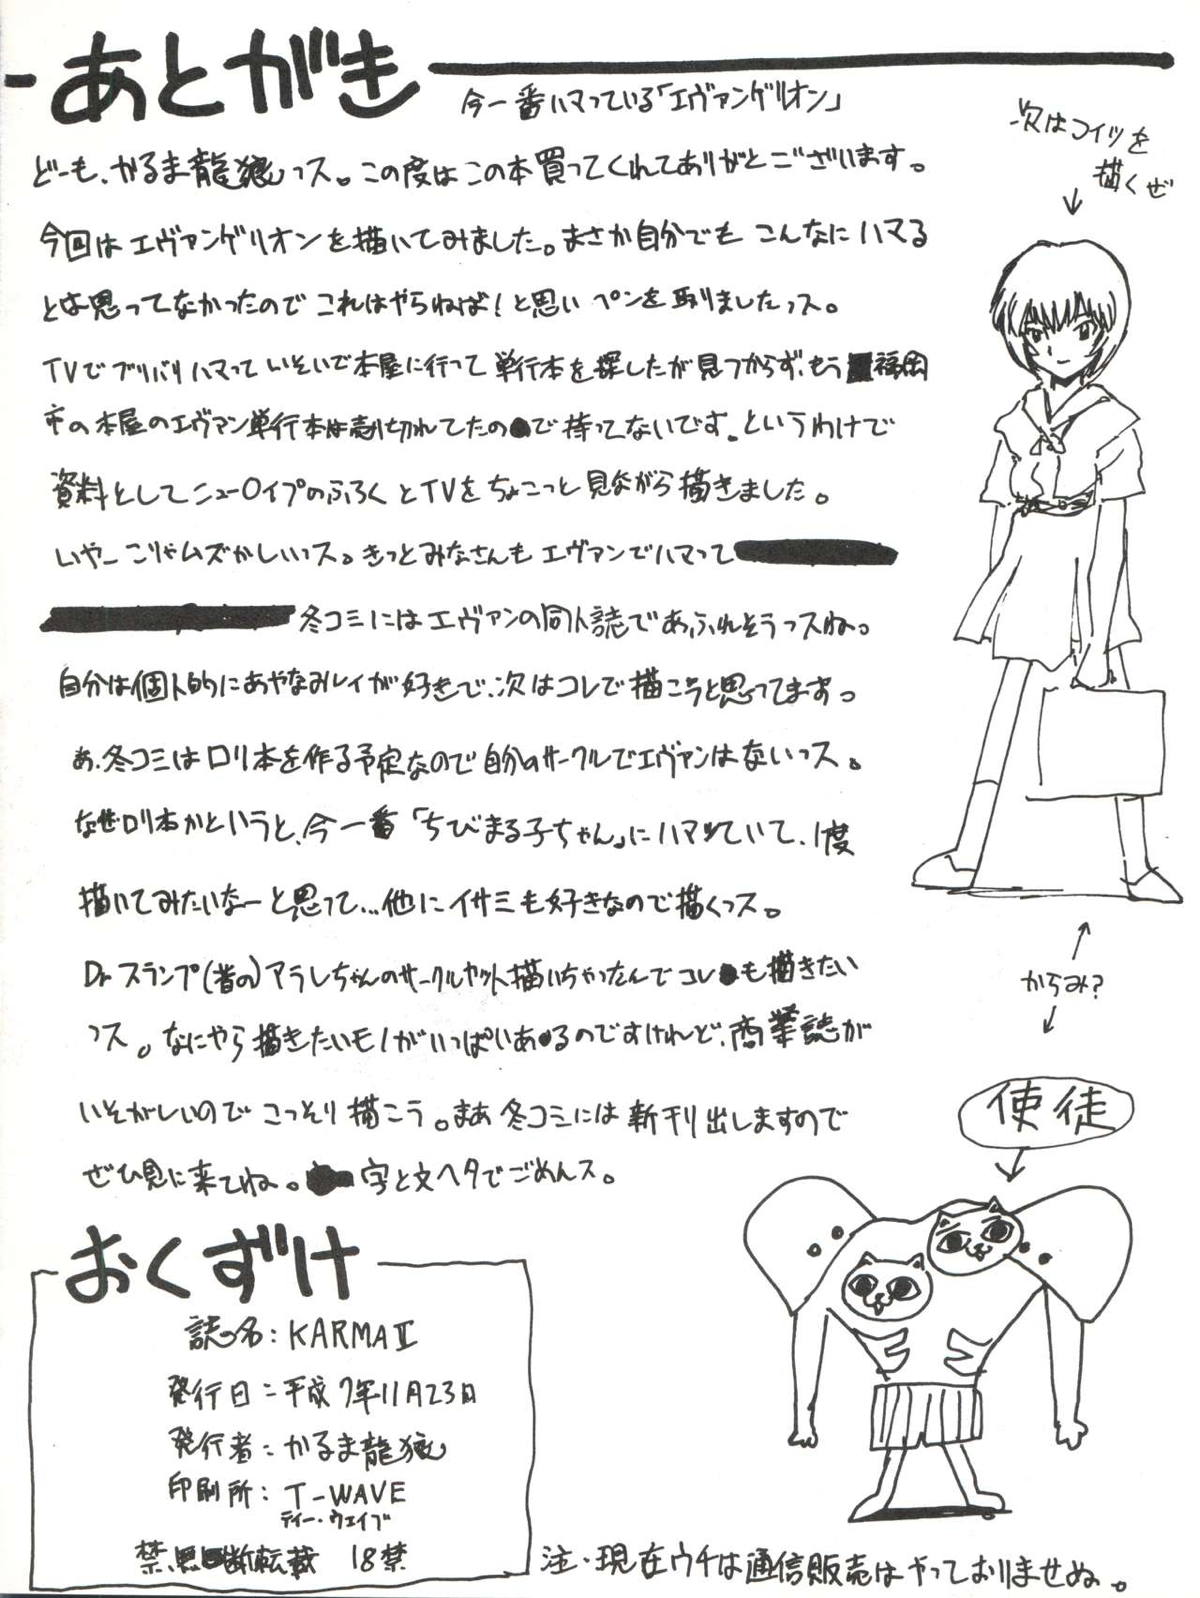 あとがき
今一番ハマっている「エヴァンゲリオン」
どーも、かるま龍狼っス。この度はこの本買ってくれてありがとございます。
今回はエヴァンゲリオンを描いてみました。まさか自分でも こんなにハマる
とは思ってなかったので これはやらねば!と思い ペンを取りましたっス。
TVでブリバリハマって いそいで本屋に行って 単行本を探したが見つからず、もう 福岡
市の本屋のエヴァン単行本は売り切れてたので持ってないです。というわけで
資料としてニュー〇イプのふろくとTVをちょこっと見ながら描きました。
いやーこりゃムズかしいっス。きっとみなさんもエヴァンでハマって
冬コミにはエヴァンの同人誌であふれそうっスね。
自分は個人的にあやなみレイが好きで、次はコレで描こうと思ってます。
あ、冬コミはロリ本を作る予定なので自分のサークルでエヴァンはないっス。
なぜロリ本かというと、今一番「ちびまる子ちゃん」にハマっていて、1度
描いてみたいなーと思って…他にイサミも好きなので描くっス。
Dr.スランプ(昔の)アラレちゃんのサークルカット描いちゃったんでコレも描きたい
っス。なにやら描きたいモノがいっぱいあるのですけれど、商業誌が
いそがしいのでこっそり描こう。まあ冬コミには新刊出しますので
ぜひ見に来てね。字と文ヘタでごめんス。
次はコイツを
描くぜ
からみ?
使徒
おくずけ
誌名:KARMAⅡ
発行日=平成7年11月23日
発行者:かるま龍狼
印刷所:T-WAVE
ティー・ウェイブ
禁 断転載 18禁
注・現在ウチは通信販売はやっておりませぬ。